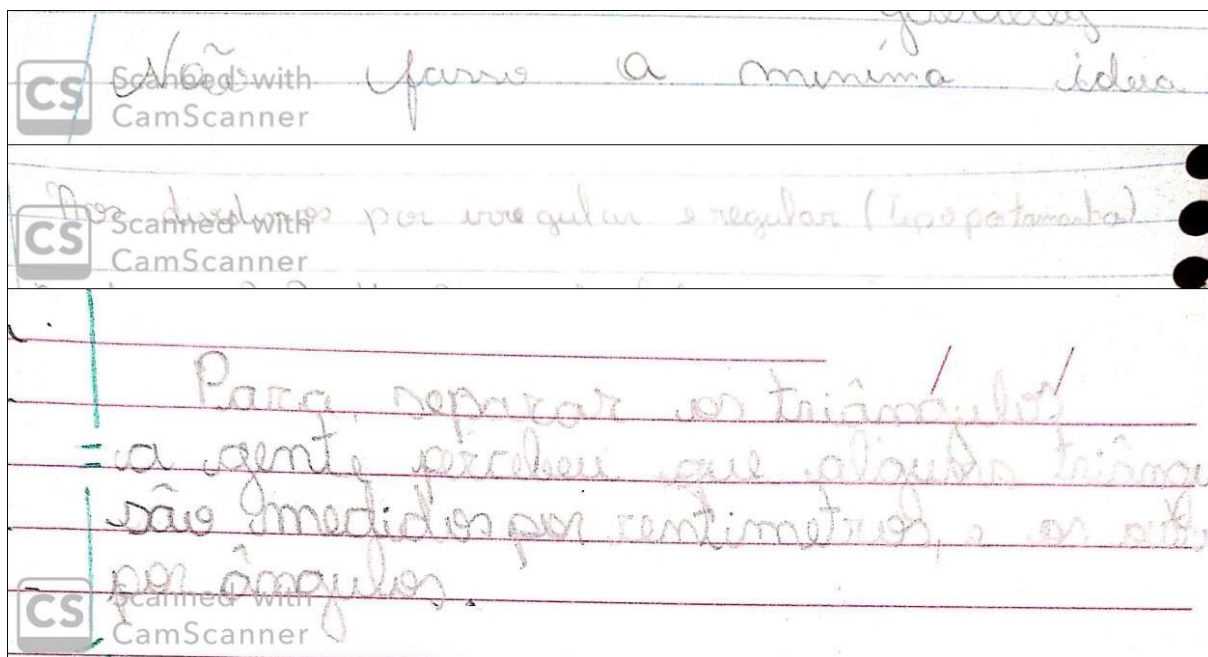 Não fasso a minima ideia
CS Scanned with
CamScanner
Nos dividimos por irregular e regular (
CS Scanned with
CamScanner
Para separar os triângulos
a gente percebeu que alguns triângu
são medidos por centimetros, e os
por ângulos.
CS Scanned with
CamScanner